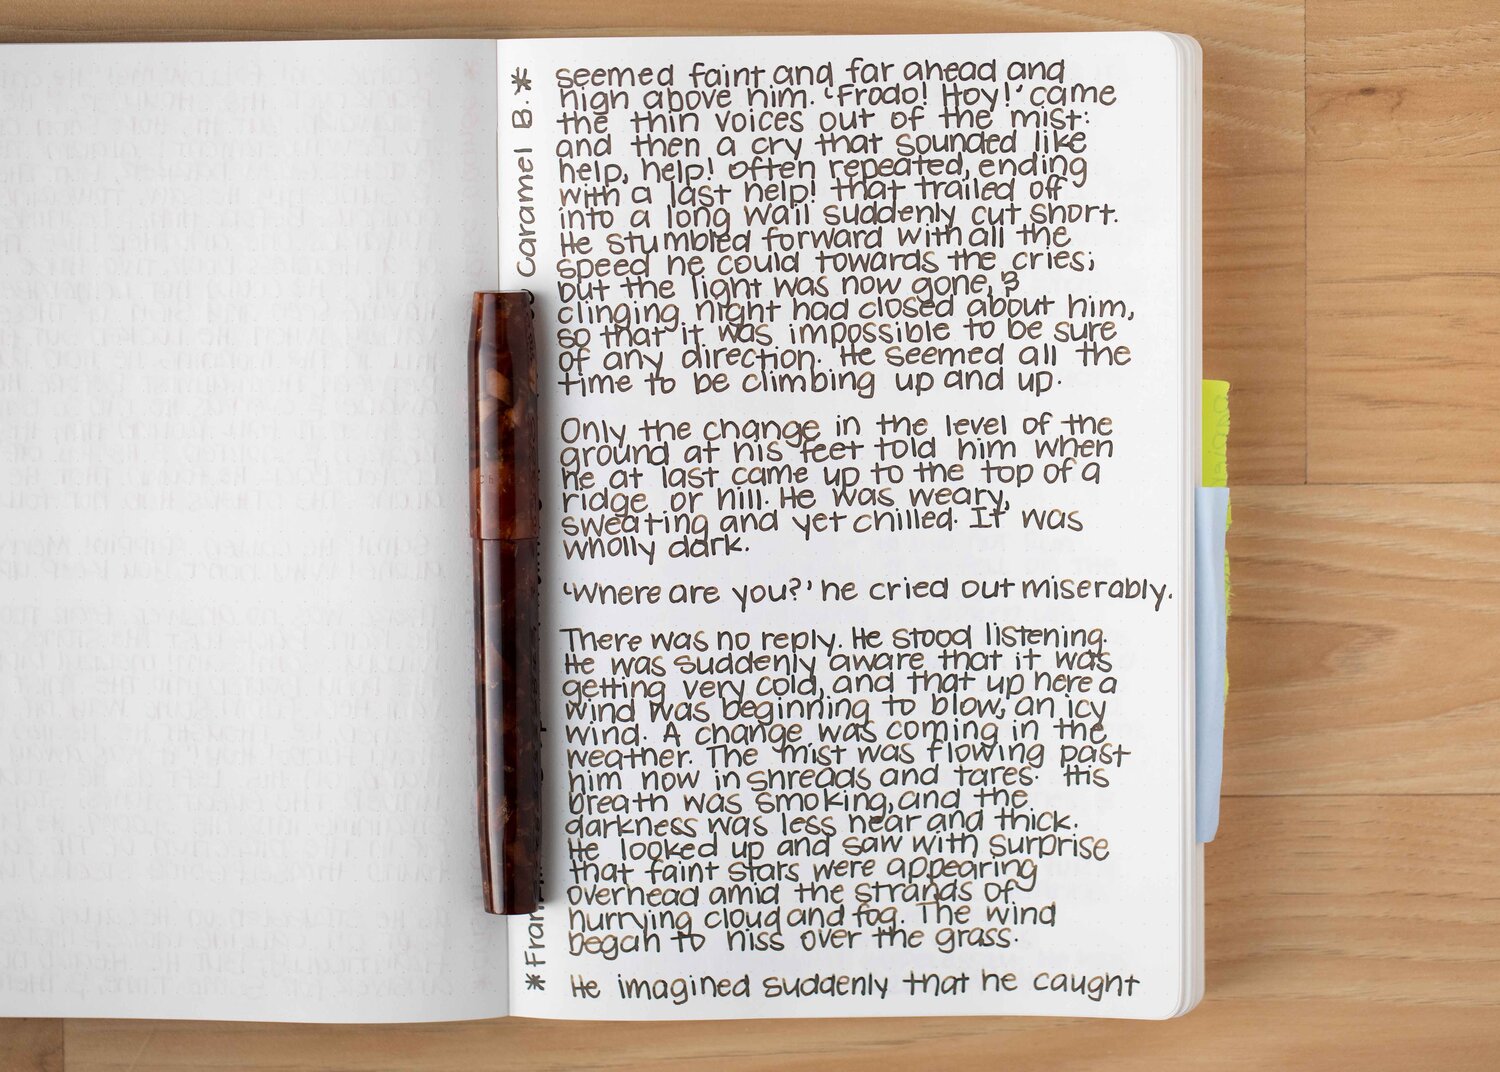 seemed faint and far ahead and
high above him. 'Frodo! Hoy!' came
the thin voices out of the mist:
and then a cry that sounded like
help, help! often repeated, ending
with a last help! that trailed off
into a long wail suddenly cut short.
He stumbled forward with all the
speed he could towards the cries;
but the light was now gone, &
clinging night had closed about him,
so that it was impossible to be sure
of any direction. He seemed all the
time to be climbing up and up.
Only the change in the level of the
ground at his feet told him when
he at last came up to the top of a
ridge or hill. He was weary,
sweating and yet chilled. It was
wholly dark.
'Where are you?' he cried out miserably.
There was no reply. He stood listening.
He was suddenly aware that it was
getting very cold, and that up here a
wind was beginning to blow, an icy
wind. A change was coming in the
weather. The mist was flowing past
him now in shreads and tares. His
breath was smoking, and the
darkness was less near and thick.
He looked up and saw with surprise
that faint stars were appearing
overhead amid the strands of
hurrying cloud and fog. The wind
began to hiss over the grass.
He imagined suddenly that he caught
*Fran
Caramel B.*